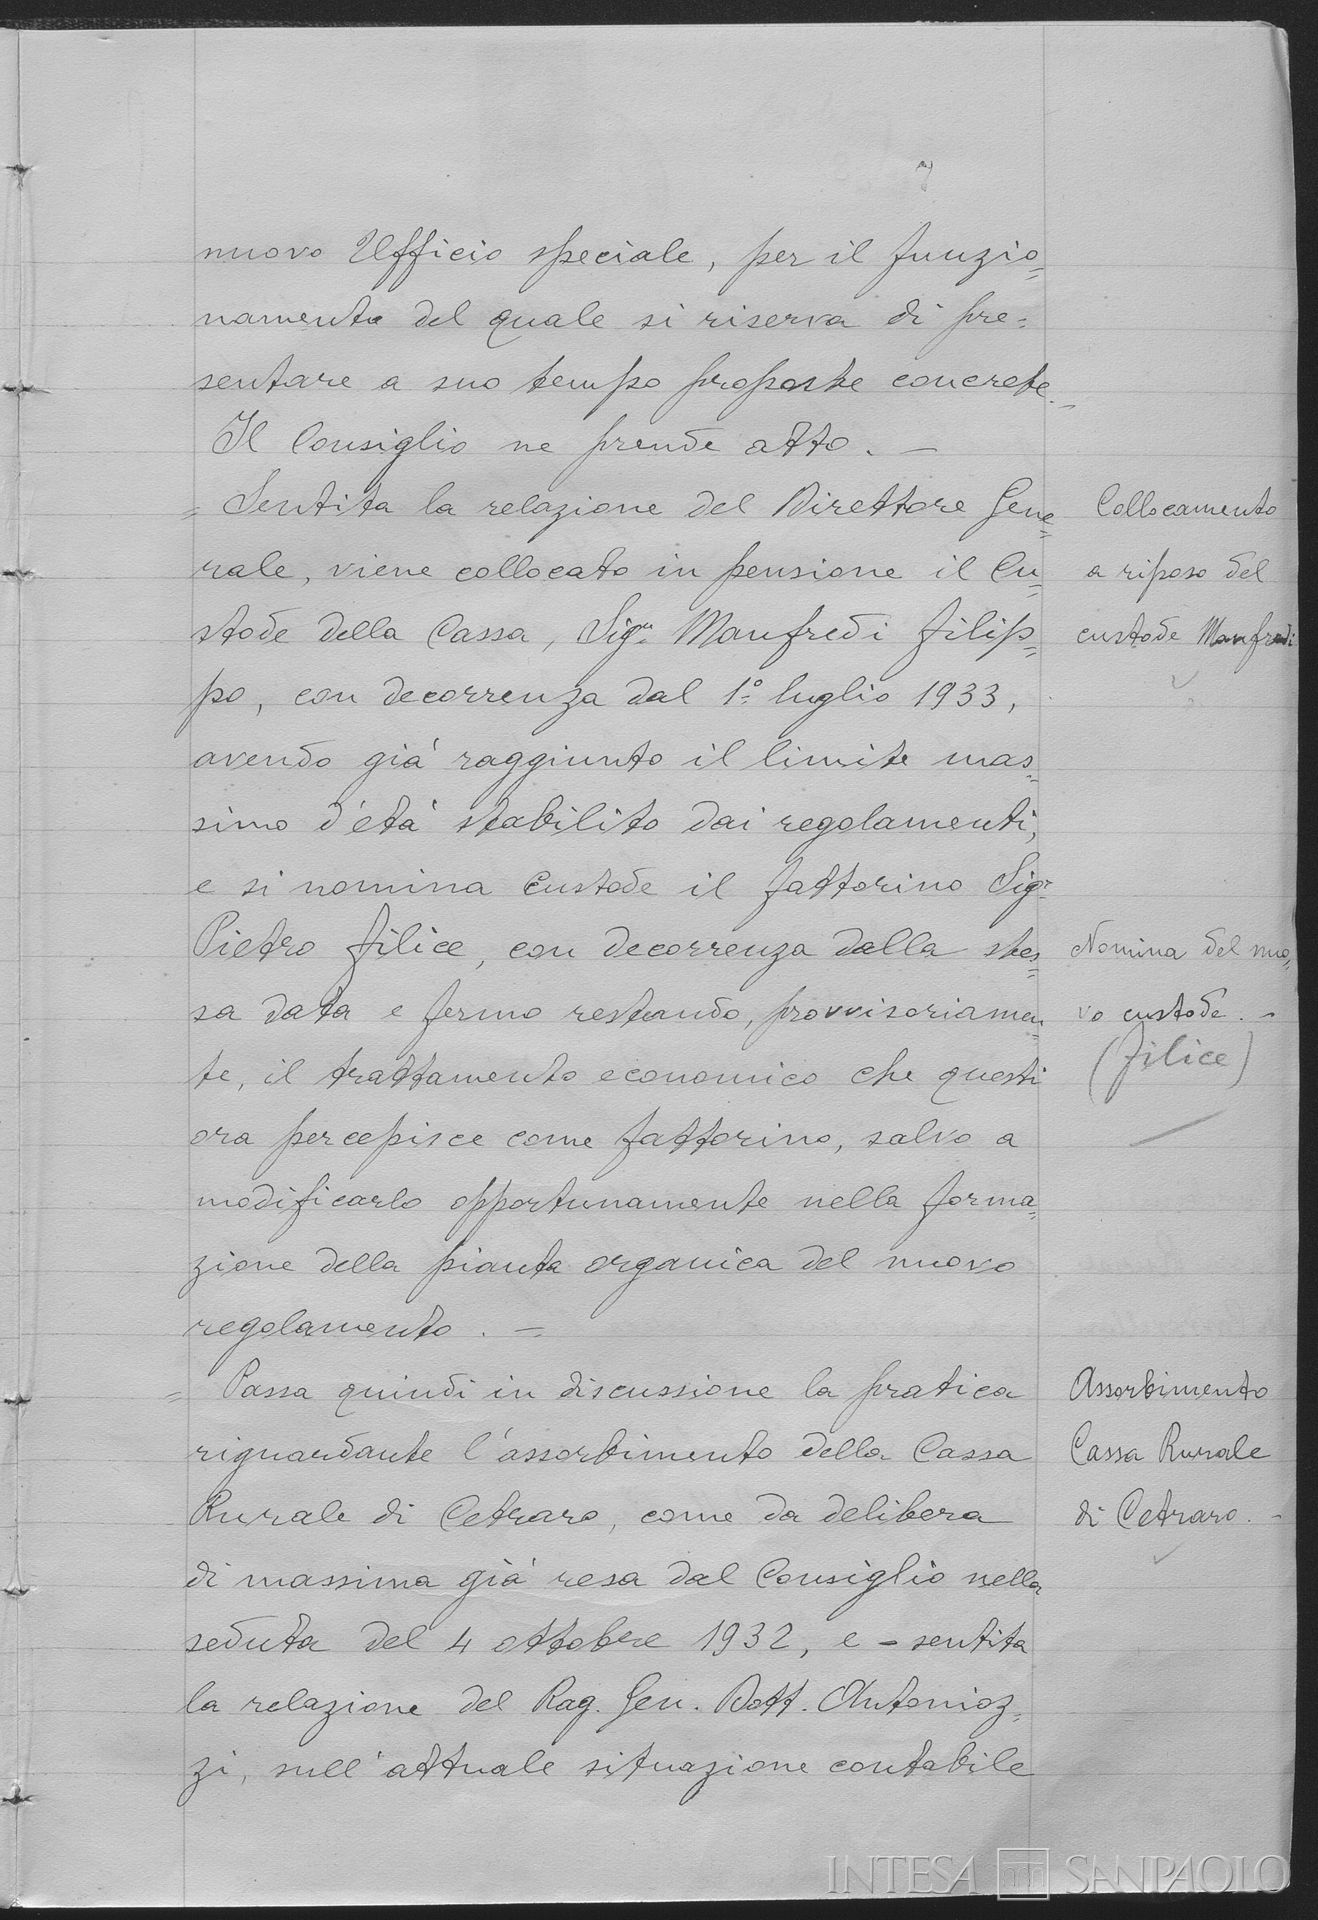 7
nuovo Ufficio speciale, per il funzio=
namento del quale si riserva di pre=
sentare a suo tempo proposte concrete. -
Il Consiglio ne prende atto. -
= Sentita la relazione del Direttore Gene=
rale, viene collocato in pensione il Cu=
stode della Cassa, Sig.r Manfredi Filip=
po, con decorrenza dal 1° luglio 1933,
avendo già raggiunto il limite mas=
simo d'età stabilito dai regolamenti,
e si nomina Custode il fattorino Sigr
Pietro Filice, con decorrenza dalla stes=
sa data e fermo restando, provvisoriamen=
te, il trattamento economico che questi
ora percepisce come fattorino, salvo a
modificarlo opportunamente nella forma=
zione della pianta organica del nuovo
regolamento. -
= Passa quindi in discussione la pratica
riguardante l'assorbimento della Cassa
Rurale di Cetraro, come da delibera
di massima già resa dal Consiglio nella
seduta del 4 ottobre 1932, e - sentita
la relazione del Rag. Gen. Dott. Antonioz=
zi, sull'attuale situazione contabile
Collocamento
a riposo del
custode Manfredi
Nomina del nuo=
vo custode. -
(Filice)
Assorbimento
Cassa Rurale
di Cetraro. -
INTESA SANPAOLO